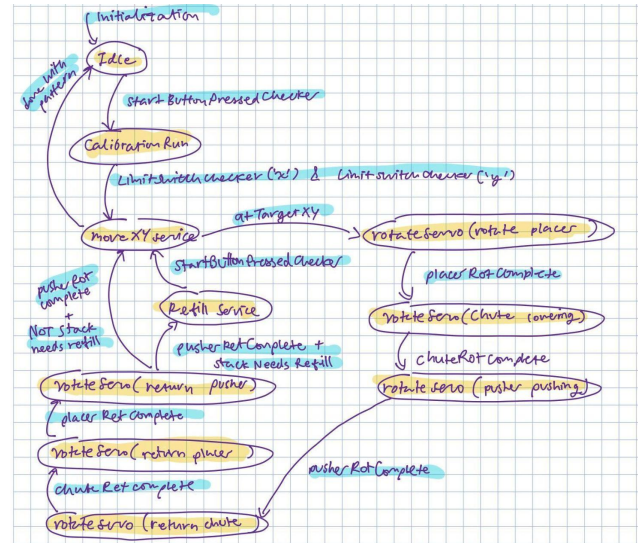 Initialization
Idle
done with
pattern
Start Button Pressed Checker
Calibration Run
Limit switch checker ('x') & Limit switch checker ('y')
at Target XY
move XY service
rotate Servo (rotate placer)
Start Button Pressed Checker
placer Rot Complete
pusher Rot
complete
+
NOT stack
needs refill
Refill Service
rotate Servo (chute lowering)
pusher Ret Complete +
stack Needs Refill
chute Rot Complete
rotate Servo (return pusher)
rotate Servo (pusher pushing)
placer Ret Complete
rotate Servo (return placer
pusher Rot Complete
chute Ret complete
rotate Servo (return chute